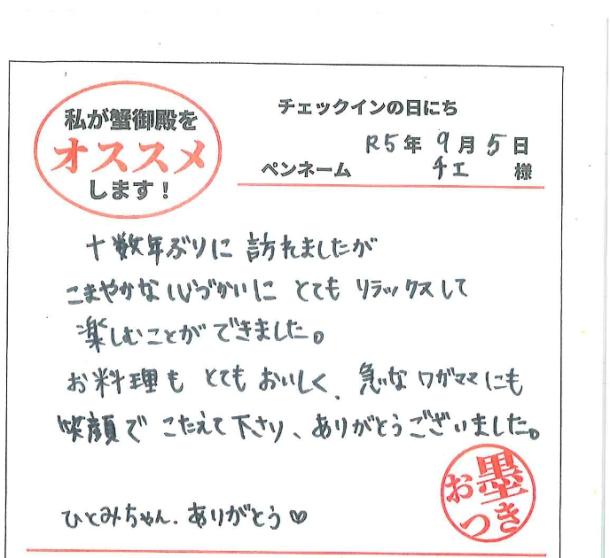 私が蟹御殿を
オススメ
します!
チェックインの日にち
R5年 9月 5日
ペンネーム チエ 様
十数年ぶりに 訪れましたが
こまやかな心づかいに とても リラックスして
楽しむことができました。
お料理も とても おいしく、急なワガママにも
笑顔で こたえて下さり、ありがとうございました。
ひとみちゃん、ありがとう♡
お墨つき